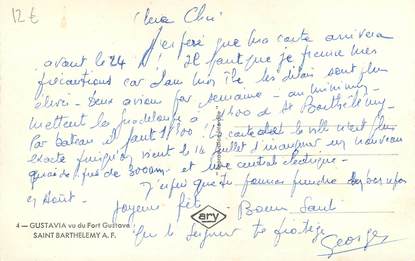 12 €
Chea Chri
J'espère que ma carte arrivera
avant le 24 ! Il faut que je prenne mes
précautions car dans mon île les délais sont plus
élevés - Deux avions par semaine - au minimum
mettent la Guadeloupe à 1h00 de St Barthélemy -
Par bateau il faut 1h00. carte de la ville n'est plus
exacte puisqu'on vient le 14 juillet d'inaugurer un nouveau
quai de plus de 300m et une centrale électrique -
J'espère que tu pourras prendre repos
en Août.
Joyeuse fête - Bonne Santé
Que le Seigneur te protège
Georges
ary
4 — GUSTAVIA vu du Fort Gustave
SAINT BARTHELEMY A. F.